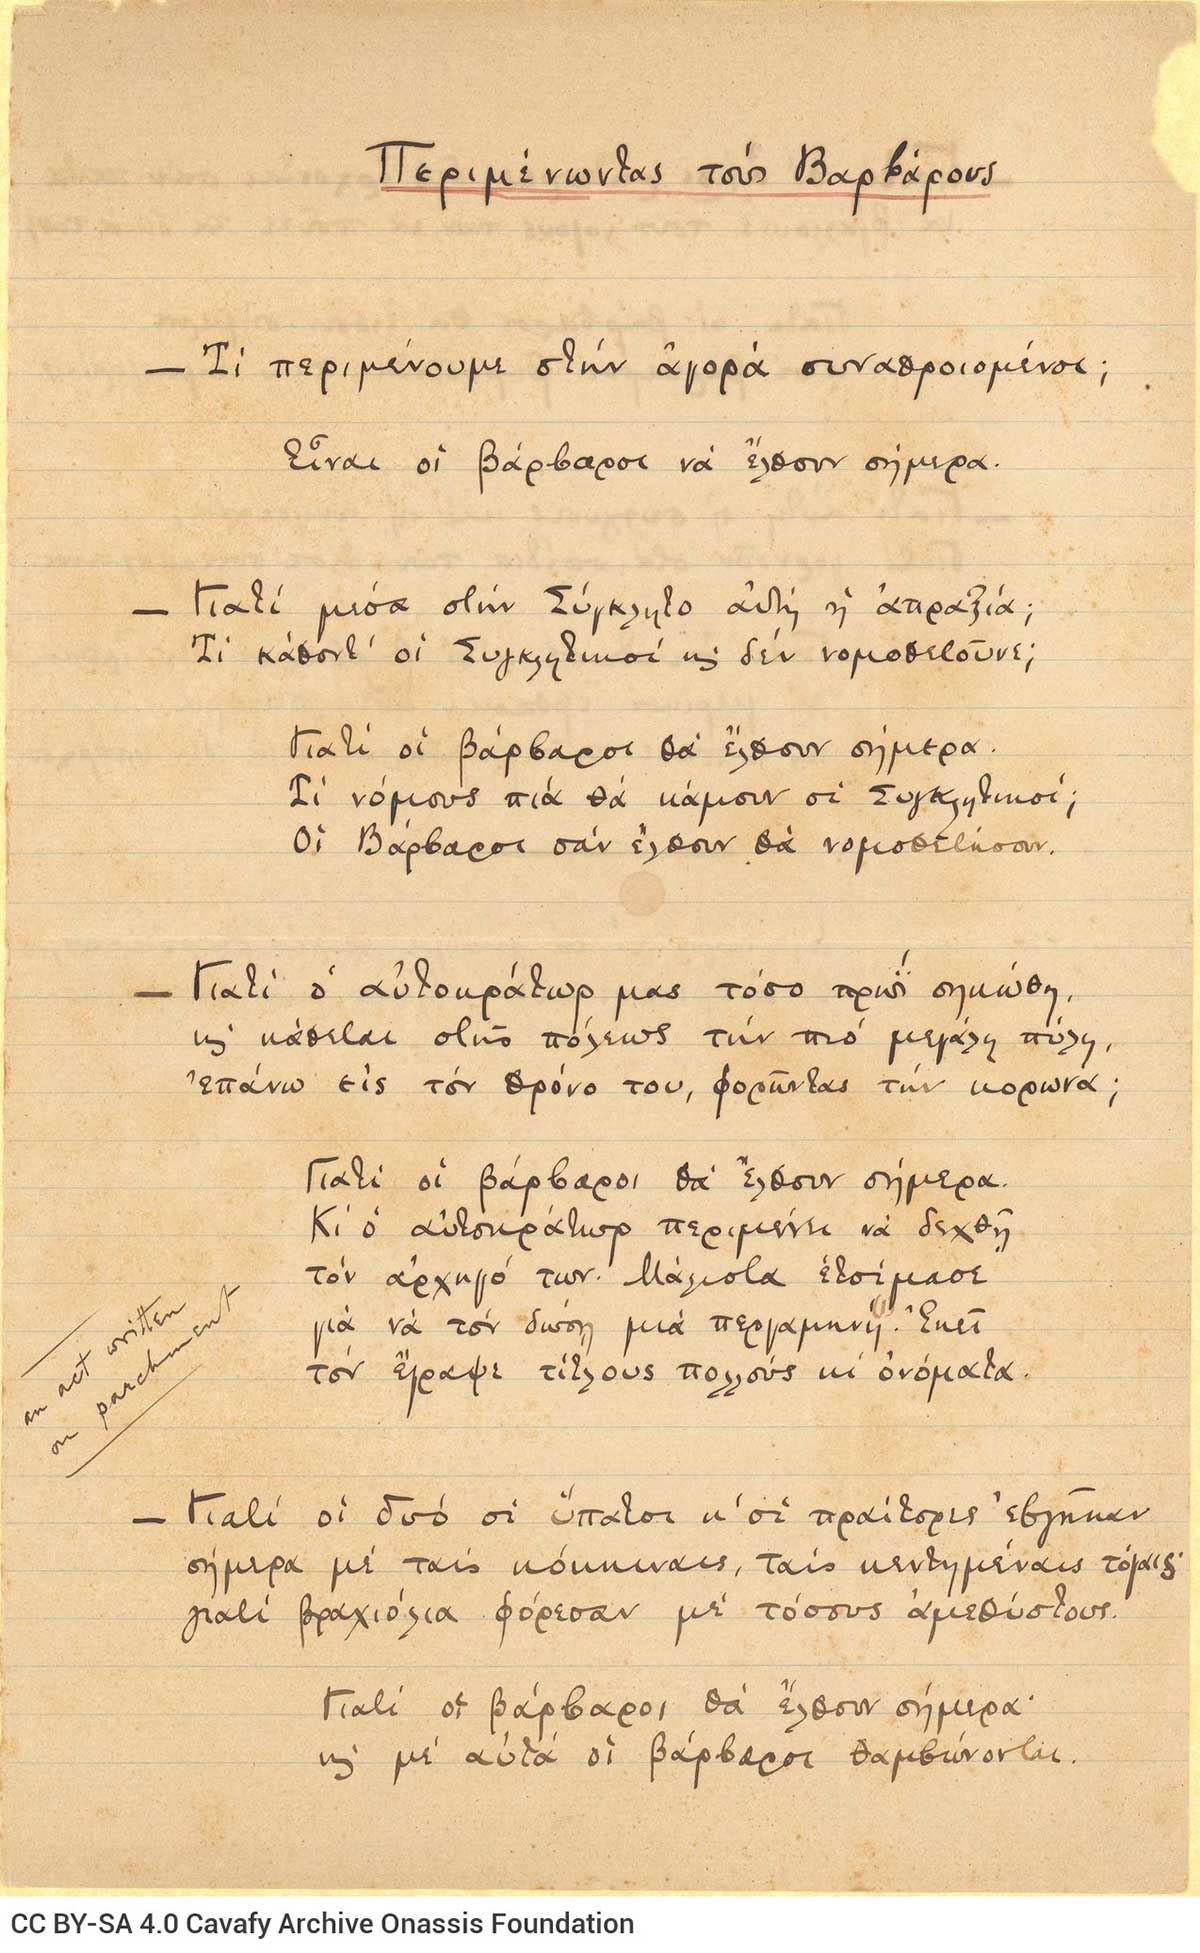 Περιμένωντας τούς Βαρβάρους
— Τί περιμένουμε στήν ἀγορά συναθροισμένοι;
Εἶναι οἱ βάρβαροι νά ἔλθουν σήμερα.
— Γιατί μέσα στήν Σύγκλητο αὐτή ἡ ἀπραξία;
Τί κάθοντ' οἱ Συγκλητικοί κῃ δέν νομοθετοῦνε;
Γιατί οἱ βάρβαροι θά ἔλθουν σήμερα.
Τί νόμους πιά θά κάμουν οἱ Συγκλητικοί;
Οἱ Βάρβαροι σάν ἔλθουν θά νομοθετήσουν.
— Γιατί ὁ αὐτοκράτωρ μας τόσο πρωΐ σηκώθη,
κῃ κάθεται στῆς πόλεως τήν πιό μεγάλη πύλη,
ἐπάνω εἰς τόν θρόνο του, φορῶντας τήν κορωνα;
Γιατί οἱ βάρβαροι θά ἔλθουν σήμερα.
Κι' ὁ αὐτοκράτωρ περιμένει νά δεχθῇ
τόν ἀρχηγό των. Μάλιστα ἑτοίμασε
γιά νά τόν δώσῃ μιά περγαμηνή. Ἐκεῖ
τόν ἔγραψε τίτλους πολλούς κι' ὀνόματα.
an act written
on parchment
— Γιατί οἱ δυό οἱ ὕπατοι κ' οἱ πραίτορες ἐβγῆκαν
σήμερα μέ ταίς κόκκιναις, ταίς κεντημέναις τόγαις·
γιατί βραχιόλια φόρεσαν μέ τόσους ἀμεθύστους.
Γιατί οἱ βάρβαροι θά ἔλθουν σήμερα·
κῃ μέ αὐτά οἱ βάρβαροι θαμβώνονται.
CC BY-SA 4.0 Cavafy Archive Onassis Foundation